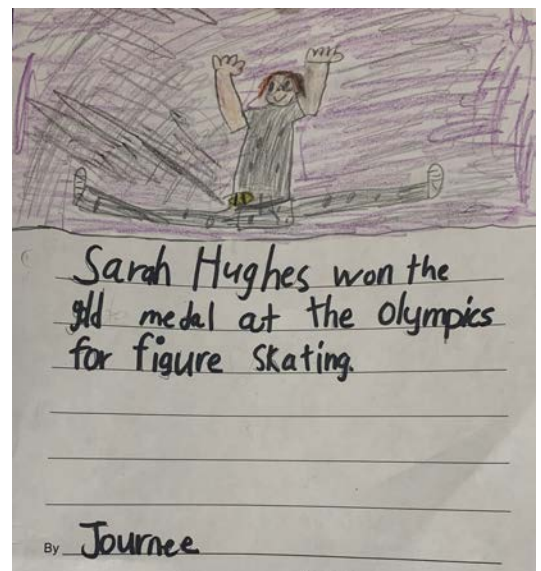 Sarah Hughes won the
gold medal at the Olympics
for figure skating.
By Journee